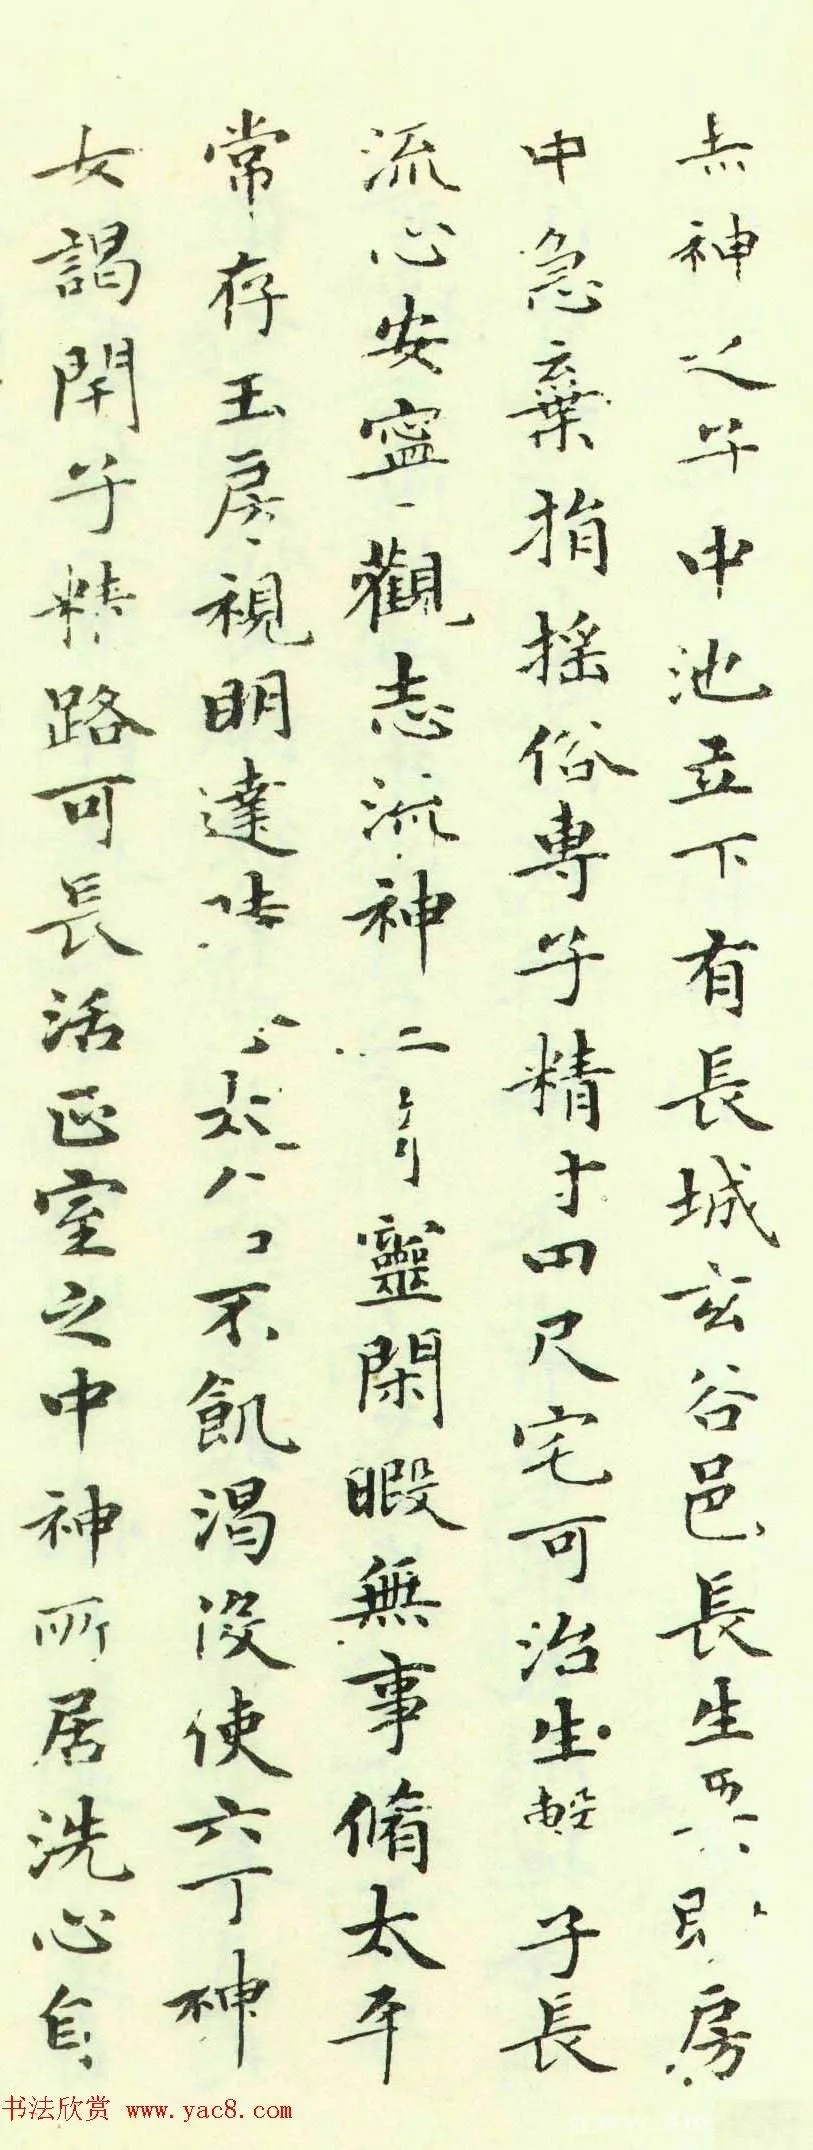 赤神之子中池立下有長城玄谷邑長生要眇房
中急棄捐摇俗專子精寸田尺宅可治生 子長
流心安寧觀志流神三奇靈閑暇無事脩太平
常存玉房視明達時 太 不飢渴没使六丁神
女謁閉子精路可長活正室之中神所居洗心自
书法欣赏 www.yac8.com